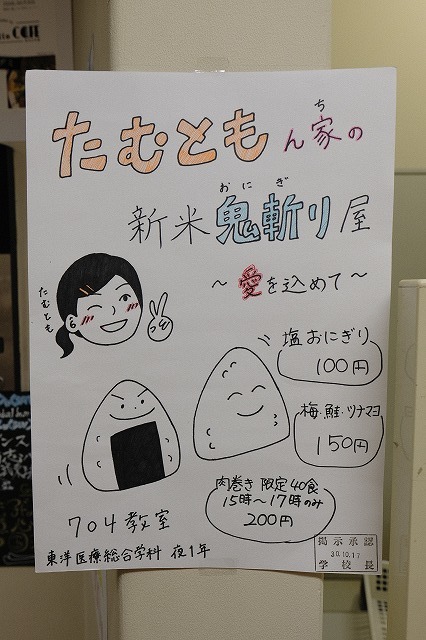 たむともん家の
ち
新米鬼斬り屋
おにぎ
～愛を込めて～
たむとも
塩おにぎり
100円
梅・鮭・ツナマヨ
150円
肉巻き 限定40食
15時～17時のみ
200円
704教室
東洋医療総合学科 夜1年
掲示承認
30.10.17
学校長